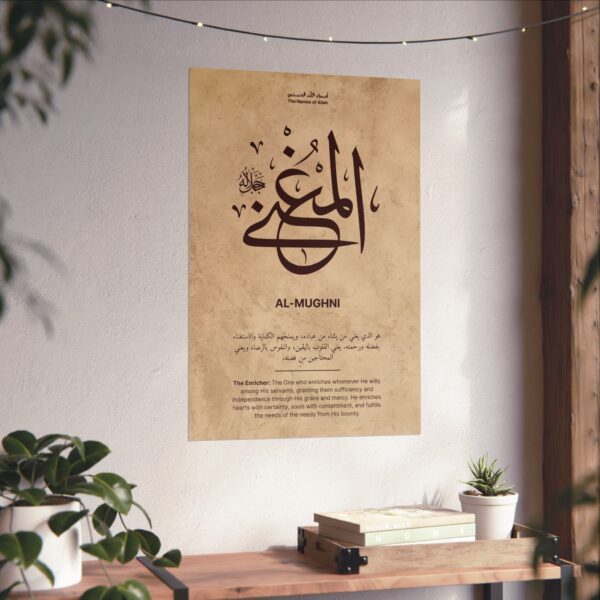 أسماء الله الحسنى
The Names of Allah
المُغْنِي
جل جلاله
AL-MUGHNI
هو الذي يغني من يشاء من عباده، ويمنحهم الكفاية والاستغناء
بفضله ورحمته، يغني القلوب باليقين، والنفوس بالرضا، ويغني
المحتاجين من فضله.
The Enricher: The One who enriches whomever He wills
among His servants, granting them sufficiency and
independence through His grace and mercy. He enriches
hearts with certainty, souls with contentment, and fulfills
the needs of the needy from His bounty.